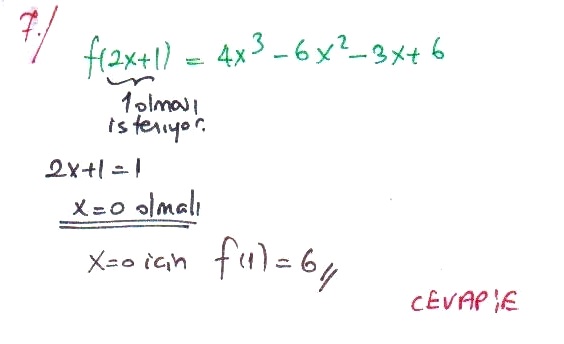 7./
f(2x+1) = 4x³ - 6x² - 3x + 6
1 olmalı
isteniyor.
2x+1=1
x=0 olmalı
x=0 için f(1)=6//
CEVAP:E